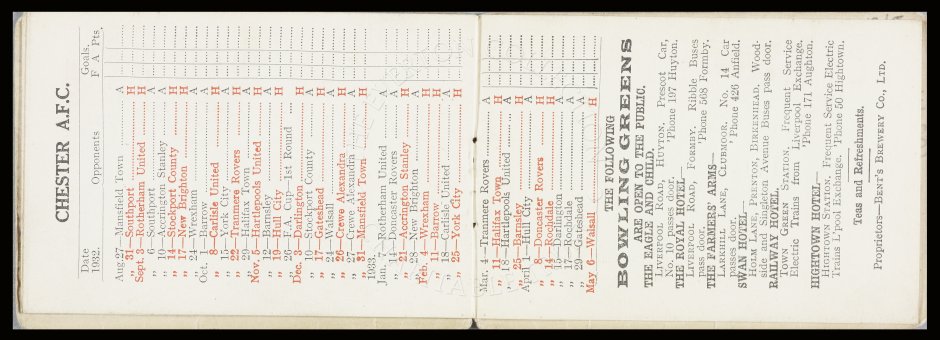 CHESTER A.F.C.
Date Goals.
1932. Opponents F A Pts.
Aug. 27—Mansfield Town A
„ 31—Southport H
Sept. 3—Rotherham United H
„ 6—Southport A
„ 10—Accrington Stanley A
„ 14—Stockport County H
„ 17—New Brighton H
„ 24—Wrexham A
Oct. 1—Barrow A
„ 8—Carlisle United H
„ 15—York City A
„ 22—Tranmere Rovers H
„ 29—Halifax Town A
Nov. 5—Hartlepools United H
„ 12—Barnsley A
„ 19—Hull City H
„ 26—F.A. Cup—1st Round
Dec. 3—Darlington H
„ 10—Stockport County A
„ 17—Gateshead H
„ 24—Walsall A
„ 26—Crewe Alexandra H
„ 27—Crewe Alexandra A
„ 31—Mansfield Town H
1933.
Jan. 7—Rotherham United A
„ 14—Doncaster Rovers A
„ 21—Accrington Stanley H
„ 28—New Brighton A
Feb. 4—Wrexham H
„ 11—Barrow H
„ 18—Carlisle United A
„ 25—York City H
Mar. 4—Tranmere Rovers A
„ 11—Halifax Town H
„ 18—Hartlepools United A
„ 25—Barnsley H
April 1—Hull City A
„ 8—Doncaster Rovers H
„ 14—Rochdale H
„ 15—Darlington A
„ 17—Rochdale A
„ 29—Gateshead A
May 6—Walsall H
THE FOLLOWING
BOWLING GREENS
ARE OPEN TO THE PUBLIC.
THE EAGLE AND CHILD.
LIVERPOOL ROAD, HUYTON. Prescot Car,
No. 10 passes door. 'Phone 197 Huyton.
THE ROYAL HOTEL—
LIVERPOOL ROAD, FORMBY. Ribble Buses
pass door. 'Phone 568 Formby.
THE FARMERS' ARMS—
LARKHILL LANE, CLUBMOOR. No. 14 Car
passes door. 'Phone 426 Anfield.
SWAN HOTEL—
HOLM LANE, PRENTON, BIRKENHEAD. Wood-
side and Singleton Avenue Buses pass door.
RAILWAY HOTEL—
TOWN GREEN STATION. Frequent Service
Electric Trains from Liverpool Exchange.
'Phone 171 Aughton.
HIGHTOWN HOTEL—
HIGHTOWN STATION. Frequent Service Electric
Trains L'pool Exchange. 'Phone 50 Hightown.
Teas and Refreshments.
Proprietors—BENT'S BREWERY CO., LTD.